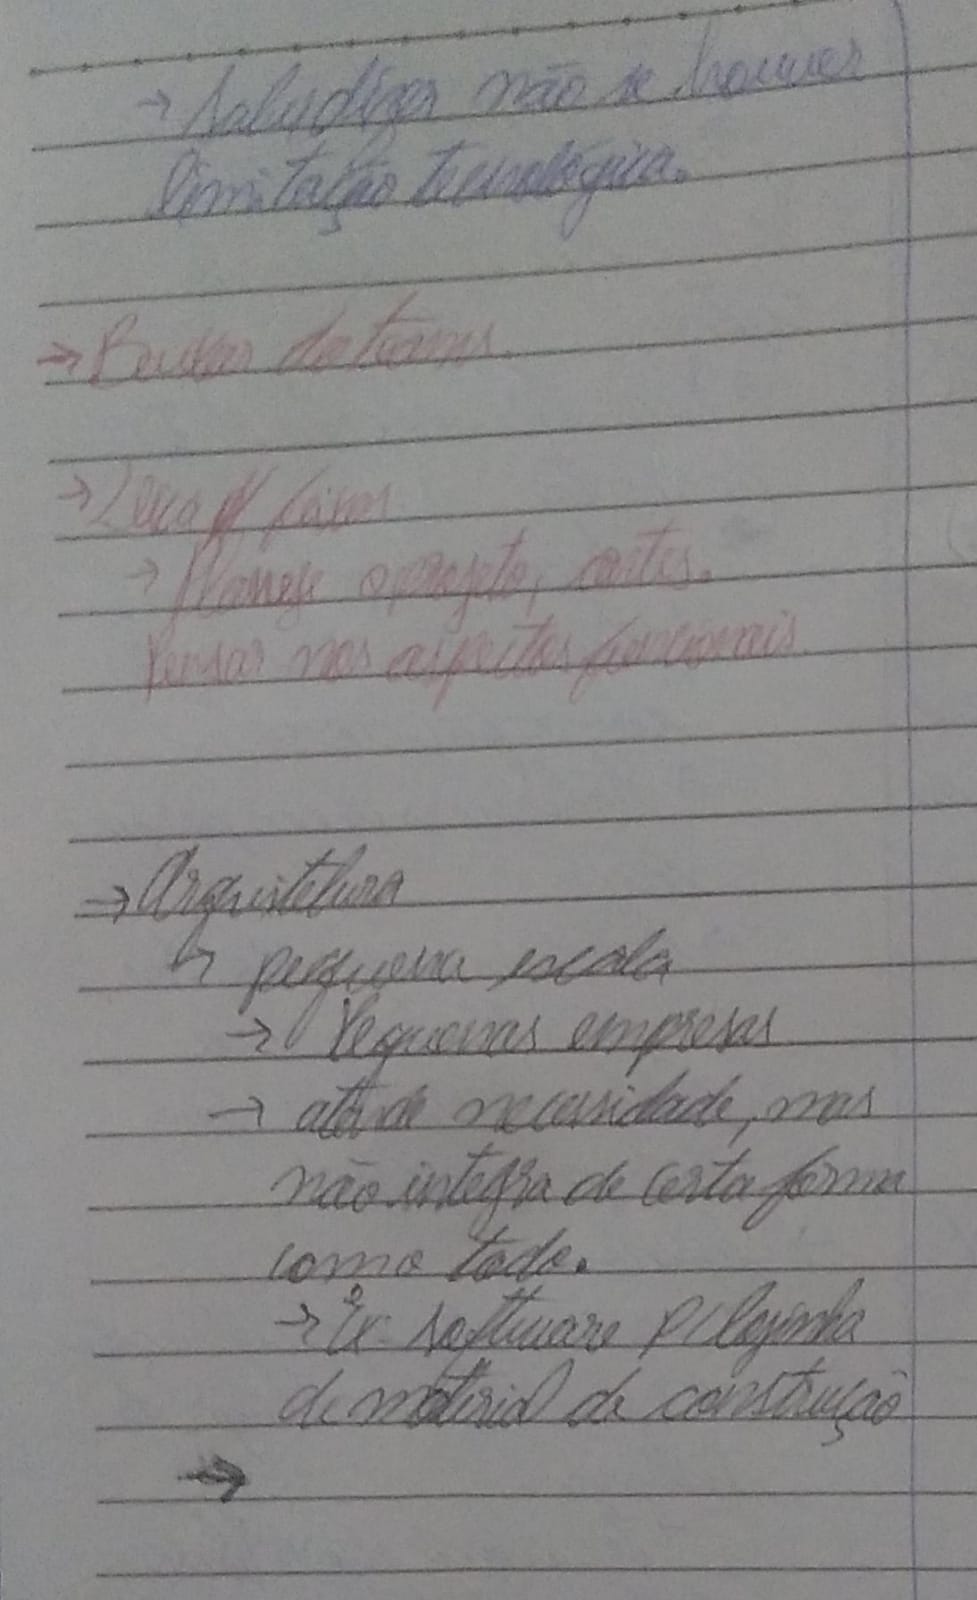 → saber dizer não se houver
limitação tecnológica.
→ Buscar
→ 
→ Planeje o projeto, antes.
Pensar nos aspectos funcionais.
→ Arquitetura
↳ pequena escala
→ Pequenas empresas
→ atende necessidade, mas
não integra de certa forma
como todo.
→ Ex: software p/ lojinha
de material de construção
→